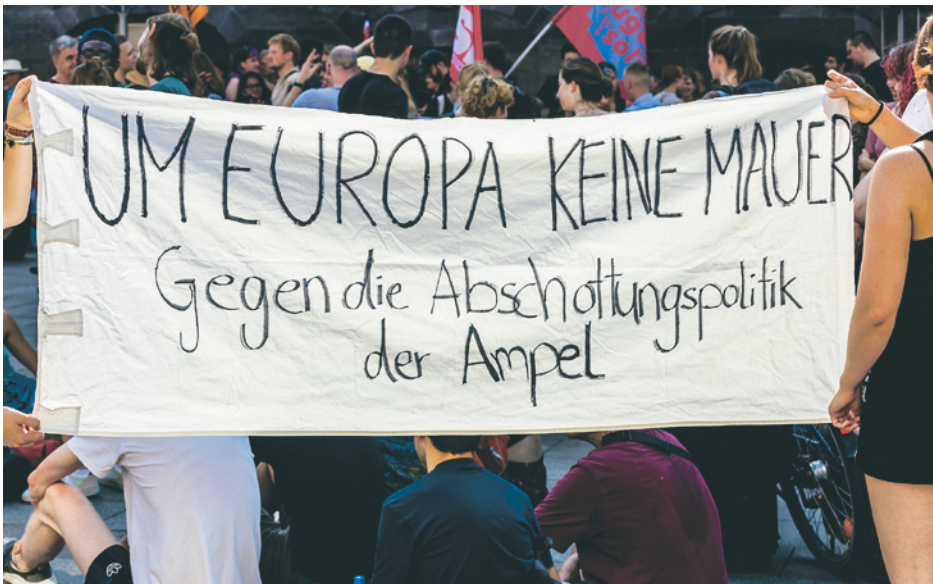 UM EUROPA KEINE MAUER
Gegen die Abschottungspolitik
der Ampel